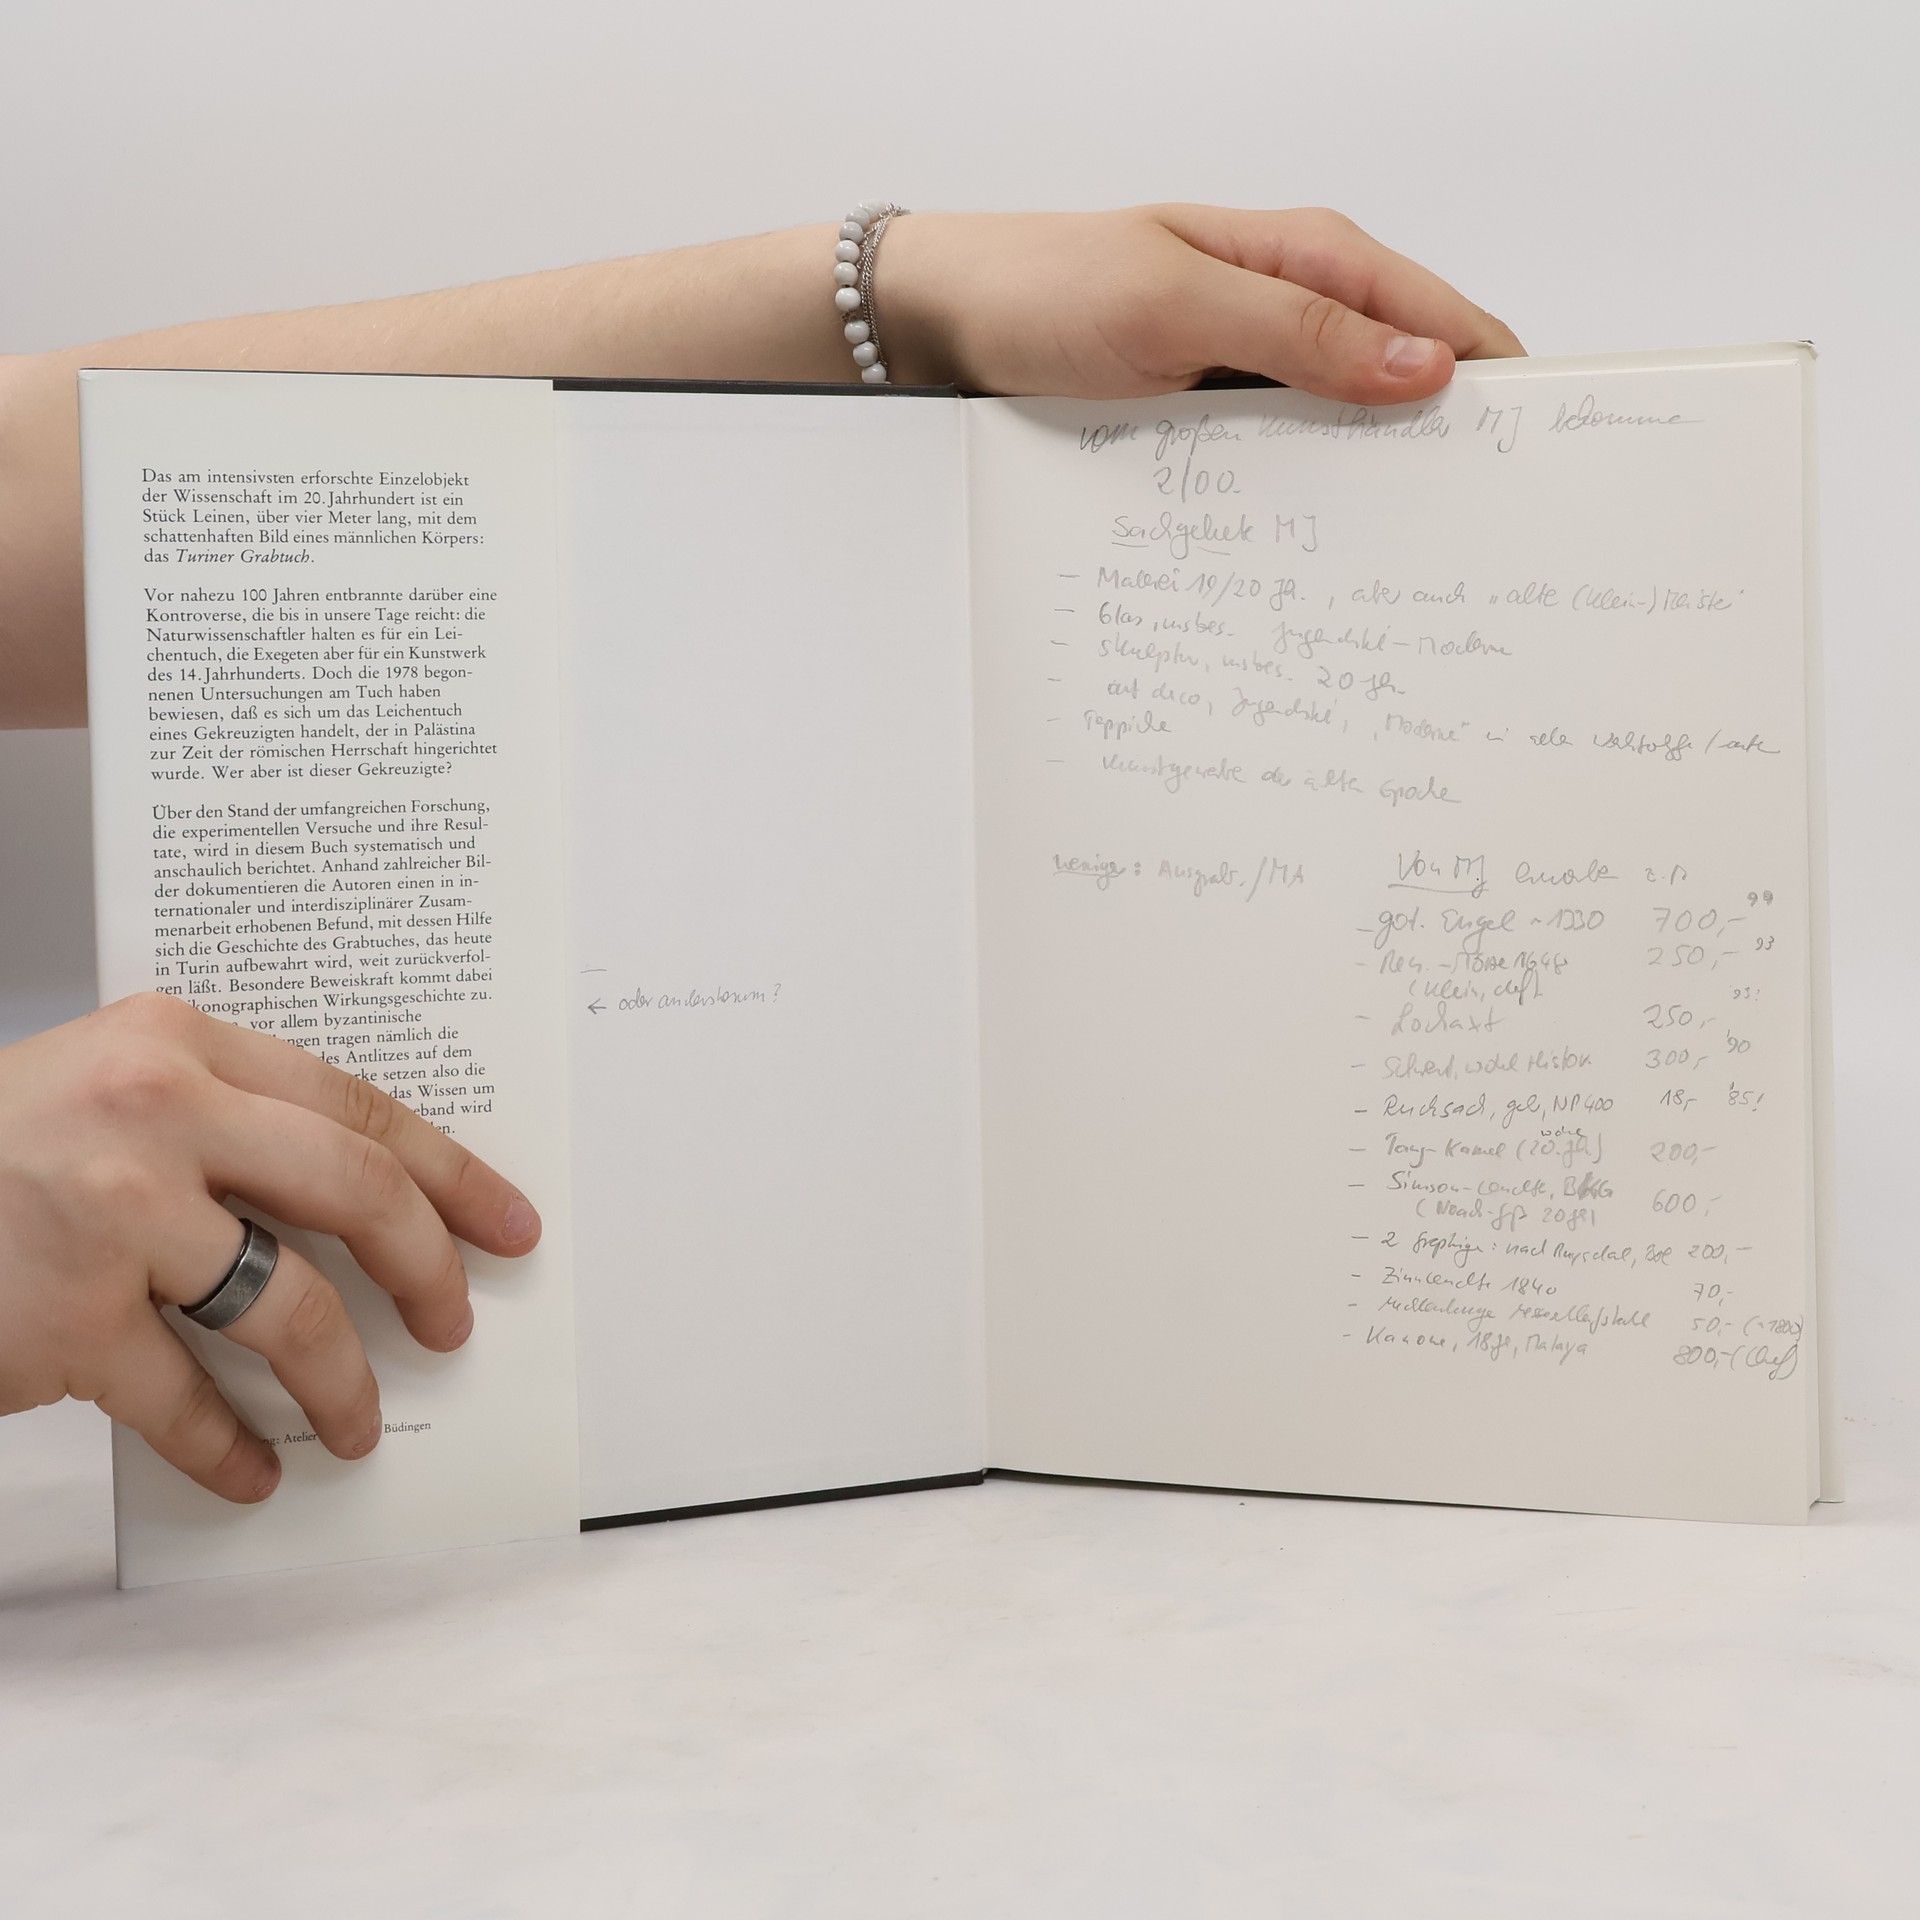 Das am intensivsten erforschte Einzelobjekt
der Wissenschaft im 20. Jahrhundert ist ein
Stück Leinen, über vier Meter lang, mit dem
schattenhaften Bild eines männlichen Körpers:
das Turiner Grabtuch.
Vor nahezu 100 Jahren entbrannte darüber eine
Kontroverse, die bis in unsere Tage reicht: die
Naturwissenschaftler halten es für ein Lei-
chentuch, die Exegeten aber für ein Kunstwerk
des 14. Jahrhunderts. Doch die 1978 begon-
nenen Untersuchungen am Tuch haben
bewiesen, daß es sich um das Leichentuch
eines Gekreuzigten handelt, der in Palästina
zur Zeit der römischen Herrschaft hingerichtet
wurde. Wer aber ist dieser Gekreuzigte?
Über den Stand der umfangreichen Forschung,
die experimentellen Versuche und ihre Resul-
tate, wird in diesem Buch systematisch und
anschaulich berichtet. Anhand zahlreicher Bil-
der dokumentieren die Autoren einen in in-
ternationaler und interdisziplinärer Zusam-
menarbeit erhobenen Befund, mit dessen Hilfe
sich die Geschichte des Grabtuches, das heute
in Turin aufbewahrt wird, weit zurückverfol-
gen läßt. Besondere Beweiskraft kommt dabei
konographischen Wirkungsgeschichte zu.
vor allem byzantinische
ngen tragen nämlich die
des Antlitzes auf dem
rke setzen also die
das Wissen um
eband wird
en.
Atelier Büdingen
← oder andersherum?
vom großen Kunsthändler MJ bekomme
2/00.
Sachgebiete MJ
– Malerei 19/20 Jh., aber auch "alte (Klein-) Meister"
– Glas, insbes. Jugendstil – Moderne
– Skulptur, insbes. 20 Jh.
– art deco, Jugendstil, "Moderne" in
– Teppiche
– Kunstgewerbe der alten Epoche
weniger: Ausgrab. / MA
Von MJ z.B.
– got. Engel ~ 1330 700,– 99
– Ren. – 1648 250,– 93
(klein, def)
– Lochaxt 250,– 93!
– Schwert, wohl Histor. 300,– '90
– Rucksack, geb, NP 400 18,– '85!
– Tang-Kamel (wohl 20. Jh.) 200,–
– Simson-Leuchte, 600,–
20 Jh)
– 2 nach Ruysdal, 200,–
– Zinnleuchte 1840 70,–
– 50,– (~1800)
– Kanone, 18 Jh, Malaya 800,– (Chef)